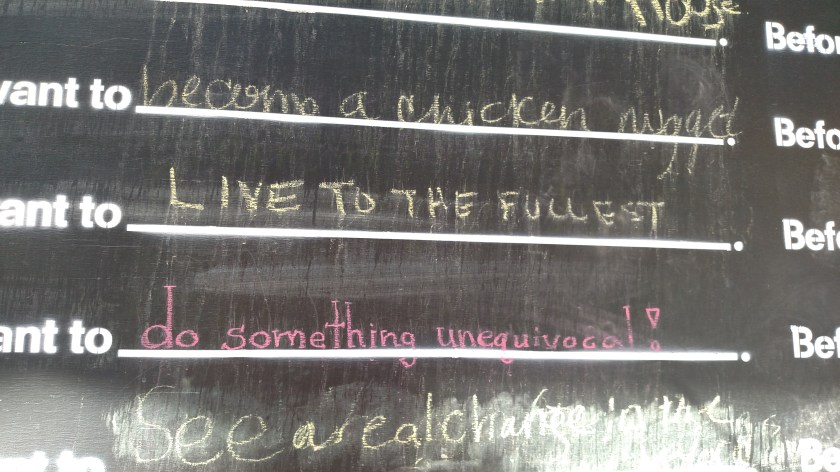 Befor
want to become a chicken nugget. Befo
ant to LIVE TO THE FULLEST. Bef
ant to do something unequivocal! . Bef
nt to See a real change in the Be